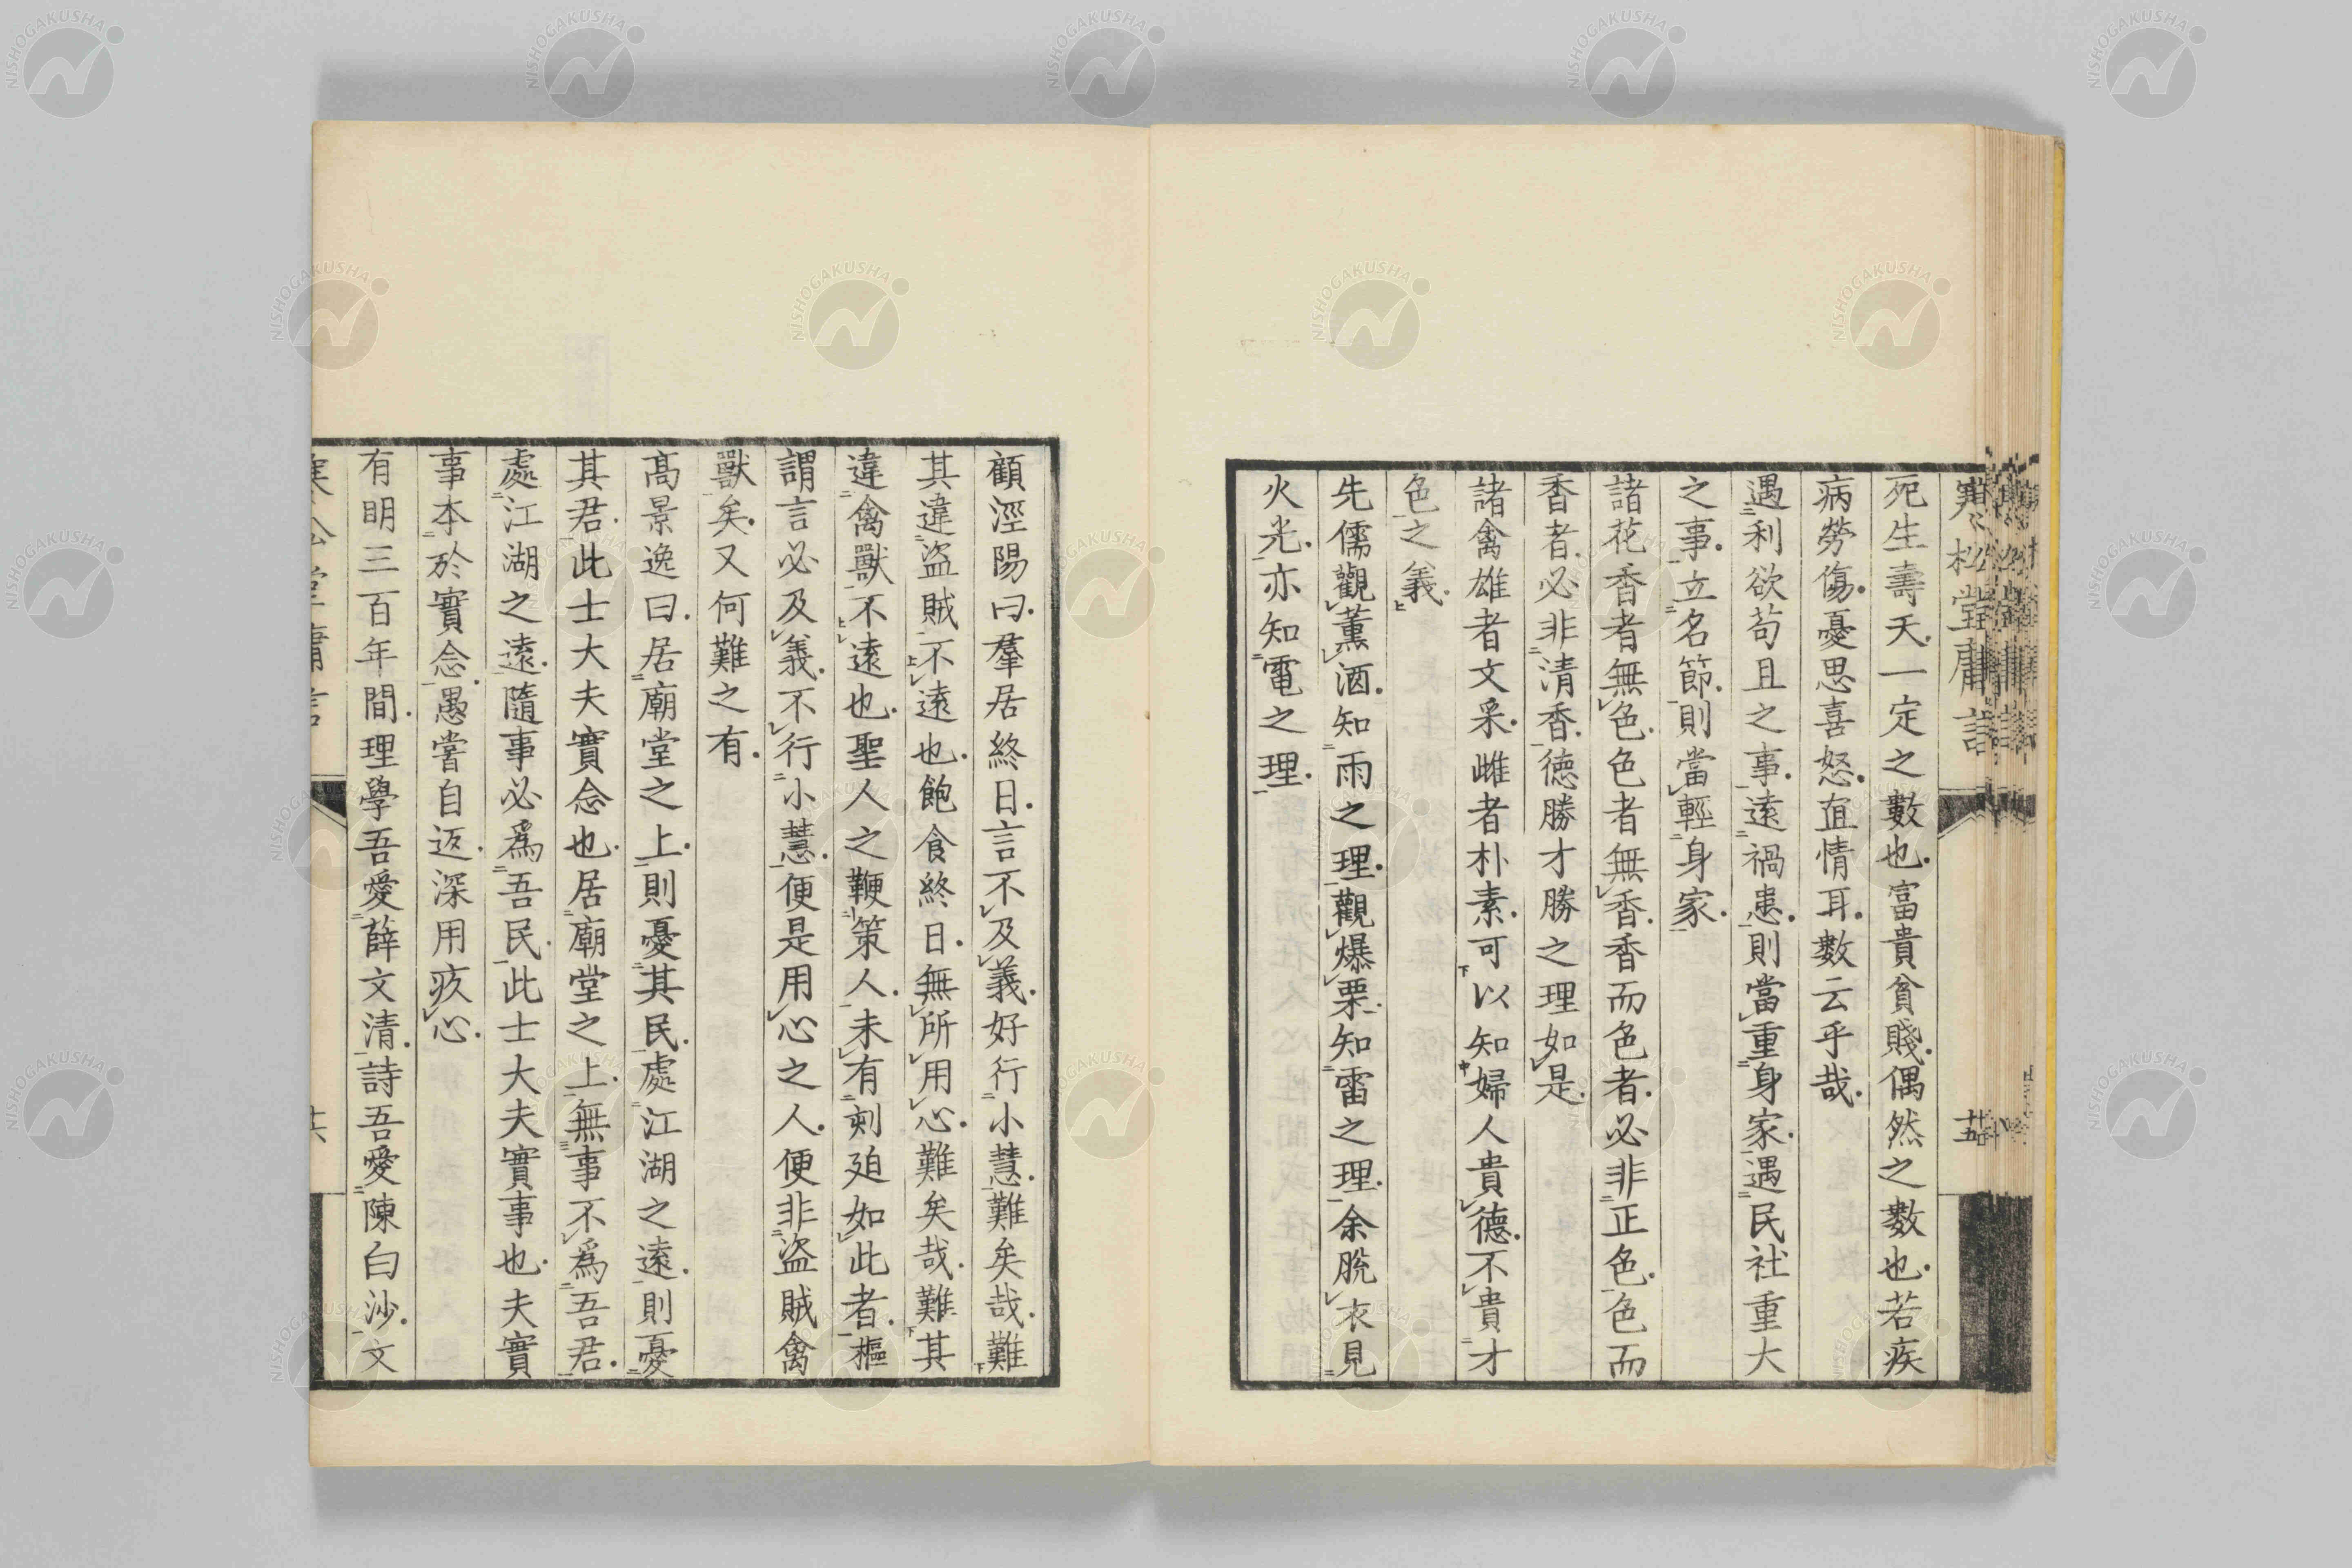 寒松堂庸言
廿五
死生壽夭.一定之數也.富貴貧賤.偶然之數也.若疾
病勞傷.憂思喜怒.直情耳.數云乎哉.
遇利欲苟且之事.遠禍患.則當重身家.遇民社重大
之事.立名節.則當輕身家.
諸花香者無色.色者無香.香而色者.必非正色.色而
香者.必非清香.德勝才勝之理如是.
諸禽雄者文采.雌者朴素.可以知婦人貴德.不貴才
色之義.
先儒觀薰酒.知雨之理.觀爆栗.知雷之理.余脫衣見
火光.亦知電之理.
顧涇陽曰.羣居終日.言不及義.好行小慧.難矣哉.難
其違盜賊不遠也.飽食終日.無所用心.難矣哉.難其
違禽獸不遠也.聖人之鞭策人.未有刻廹如此者.樞
謂言必及義.不行小慧.便是用心之人.便非盜賊禽
獸矣.又何難之有.
髙景逸曰.居廟堂之上.則憂其民.處江湖之遠.則憂
其君.此士大夫實念也.居廟堂之上.無事不爲吾君.
處江湖之遠.隨事必爲吾民.此士大夫實事也.夫實
事本於實念.愚嘗自返.深用疚心.
有明三百年間.理學吾愛薛文清.詩吾愛陳白沙.文
寒松堂庸言
廿六
NISHOGAKUSHA